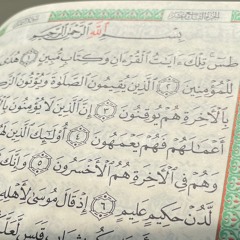 بِسْمِ ٱللَّهِ ٱلرَّحْمَٰنِ ٱلرَّحِيمِ
طسٓ تِلْكَ ءَايَٰتُ ٱلْقُرْءَانِ وَكِتَابٍ مُّبِينٍ ١ هُدًى
لِلْمُؤْمِنِينَ ٢ ٱلَّذِينَ يُقِيمُونَ ٱلصَّلَوٰةَ وَيُؤْتُونَ ٱلزَّ
بِٱلْءَاخِرَةِ هُمْ يُوقِنُونَ ٣ إِنَّ ٱلَّذِينَ لَا يُؤْمِنُونَ بِٱ
أَعْمَٰلَهُمْ فَهُمْ يَعْمَهُونَ ٤ أُو۟لَٰٓئِكَ ٱلَّذِ
وَهُمْ فِى ٱلْءَاخِرَةِ هُمُ ٱلْأَخْسَرُونَ ٥ وَإِنَّكَ
لَّدُنْ حَكِيمٍ عَلِيمٍ ٦ إِذْ قَالَ مُوسَىٰ لِأَهْلِهِ
بِشِهَابٍ قَبَسٍ لَّعَلَّ